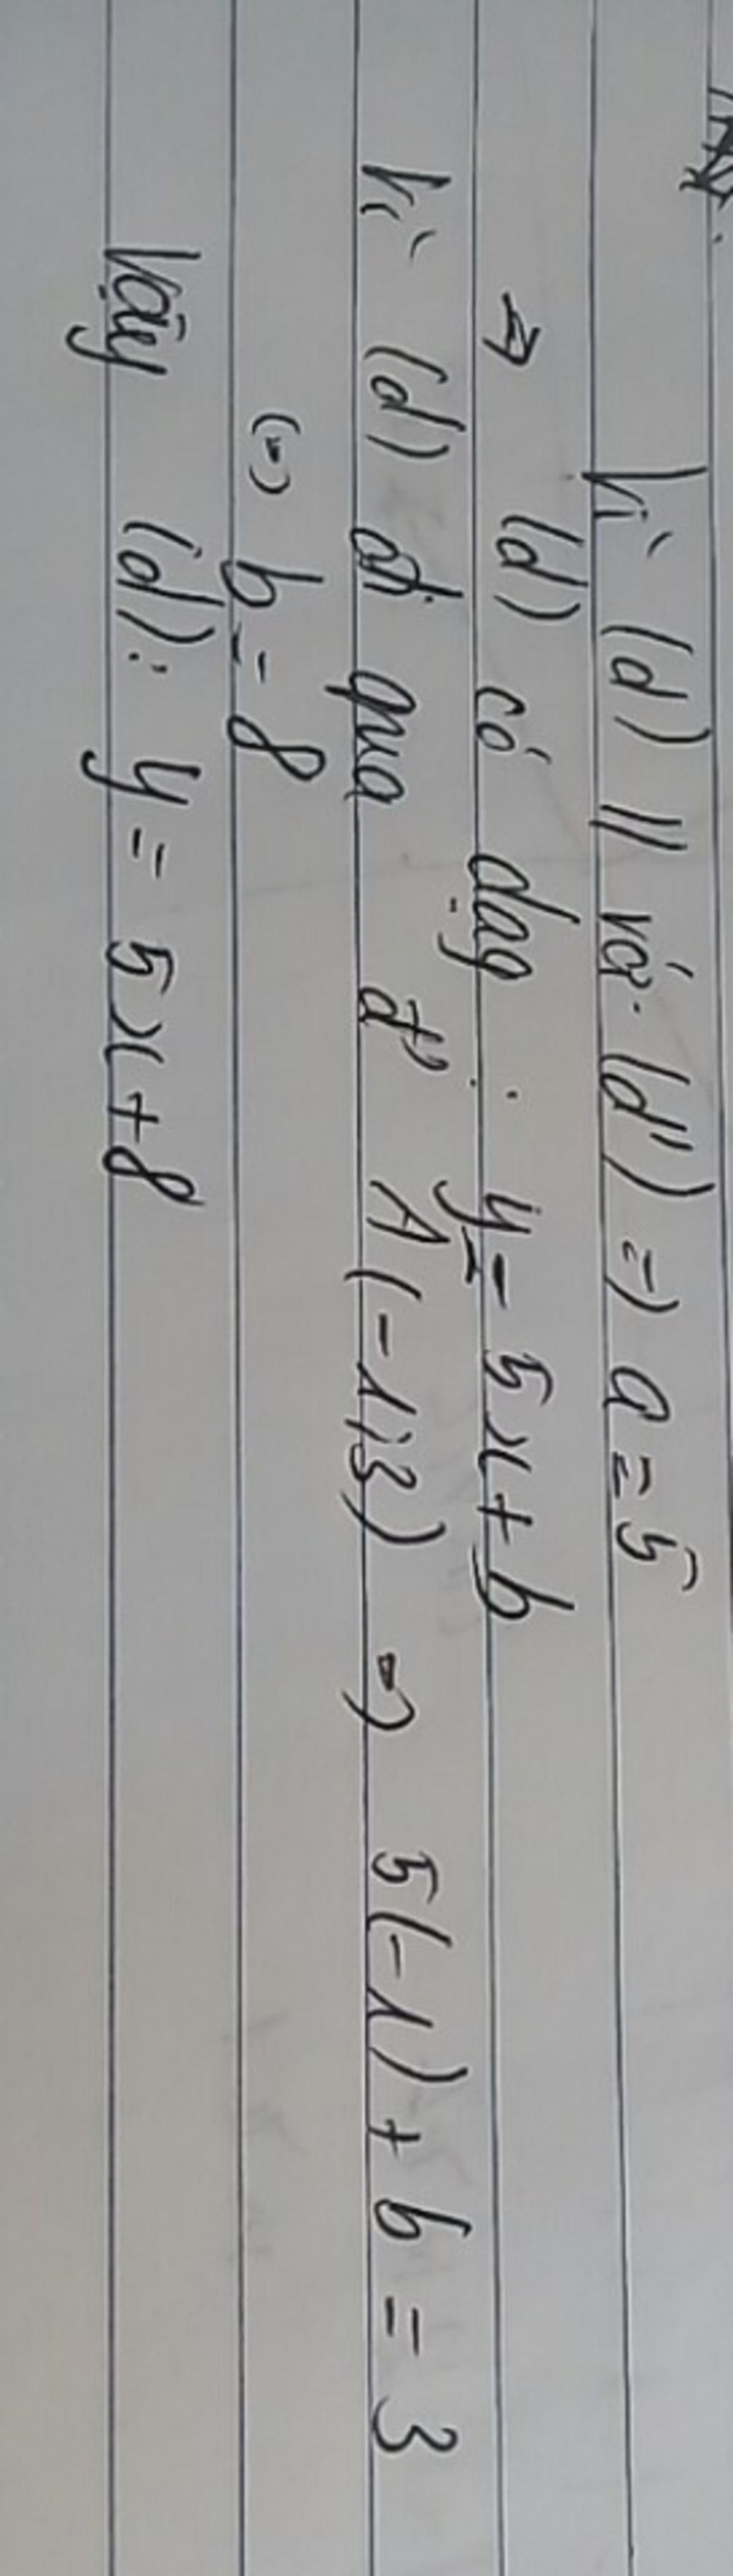 Vì (d) // với (d') => a = 5
=> (d) có dạg : y = 5x + b
Vì (d) đi qua đ' A (-1;3) => 5(-1) + b = 3
(=) b = 8
Vậy (d): y = 5x + 8